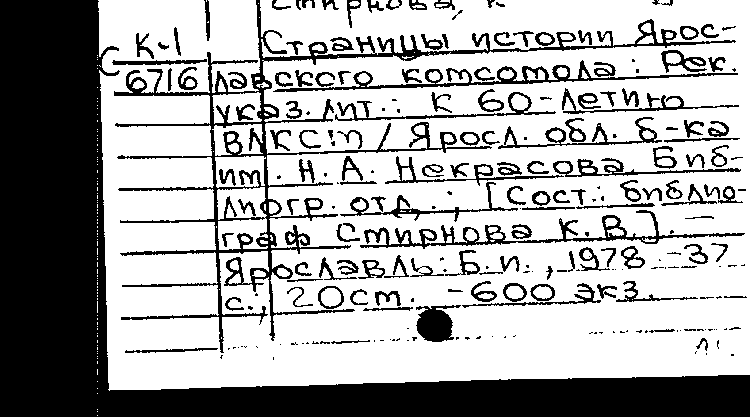 Смирнова, К
С К-1 Страницы истории Ярос-
6716 лавского комсомола: Рек.
указ. лит.: к 60-летию
ВЛКСМ / Яросл. обл. б-ка
им. Н. А. Некрасова. Биб-
лиогр. отд.; [Сост.: библио-
граф Смирнова К. В.]. –
Ярославль: Б.и., 1978. –37
с.; 20см. –600 экз.